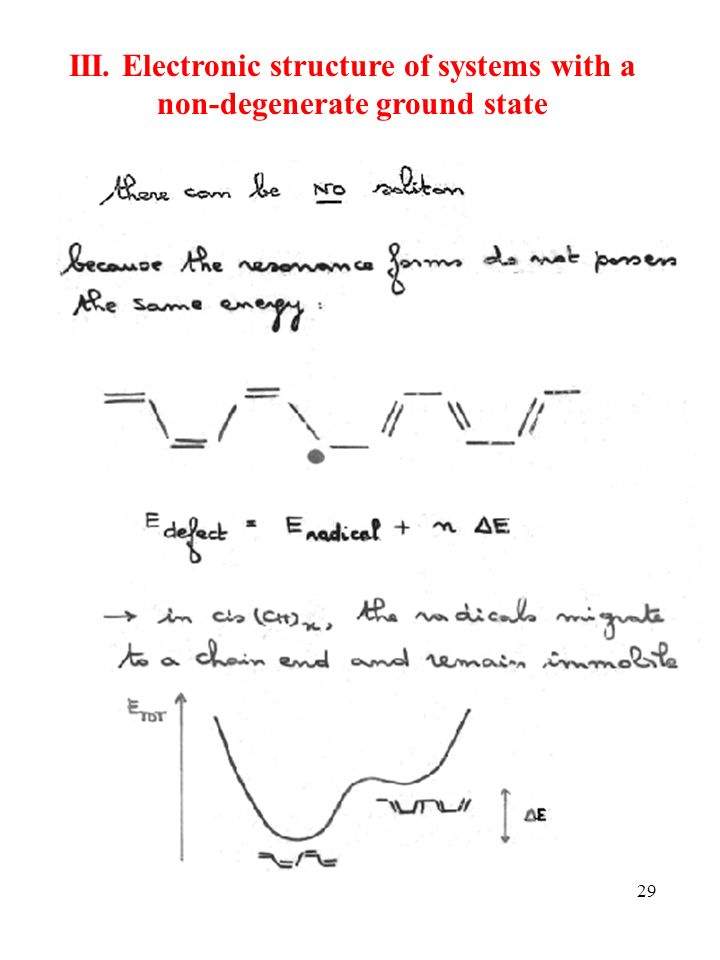 III. Electronic structure of systems with a
non-degenerate ground state
there can be NO soliton
because the resonance forms do not possess
the same energy :
E defect = E radical + n ΔE
→ in cis (CH)x, the radicals migrate
to a chain end and remain immobile
E TOT
ΔE
29